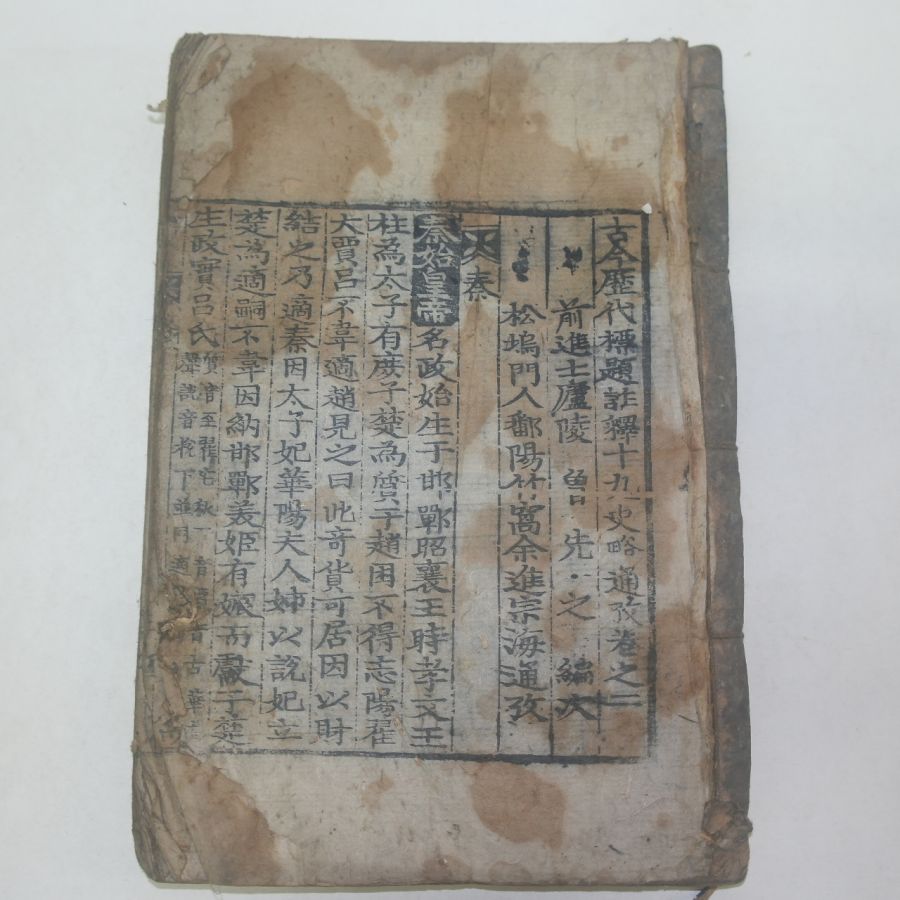 古今歷代標題註釋十九史略通攷卷之二
前進士廬陵 曾先之 編次
松塢門人鄱陽竹窩余進宗海通攷
秦
秦始皇帝名政始生于邯鄲昭襄王時孝文王
柱為太子有庶子楚為質于趙困不得志陽翟
大賈呂不韋適趙見之曰此奇貨可居因以財
結之乃適秦因太子妃華陽夫人姊以說妃立
楚為適嗣不韋因納邯鄲美姬有娠而獻于楚
生政實呂氏